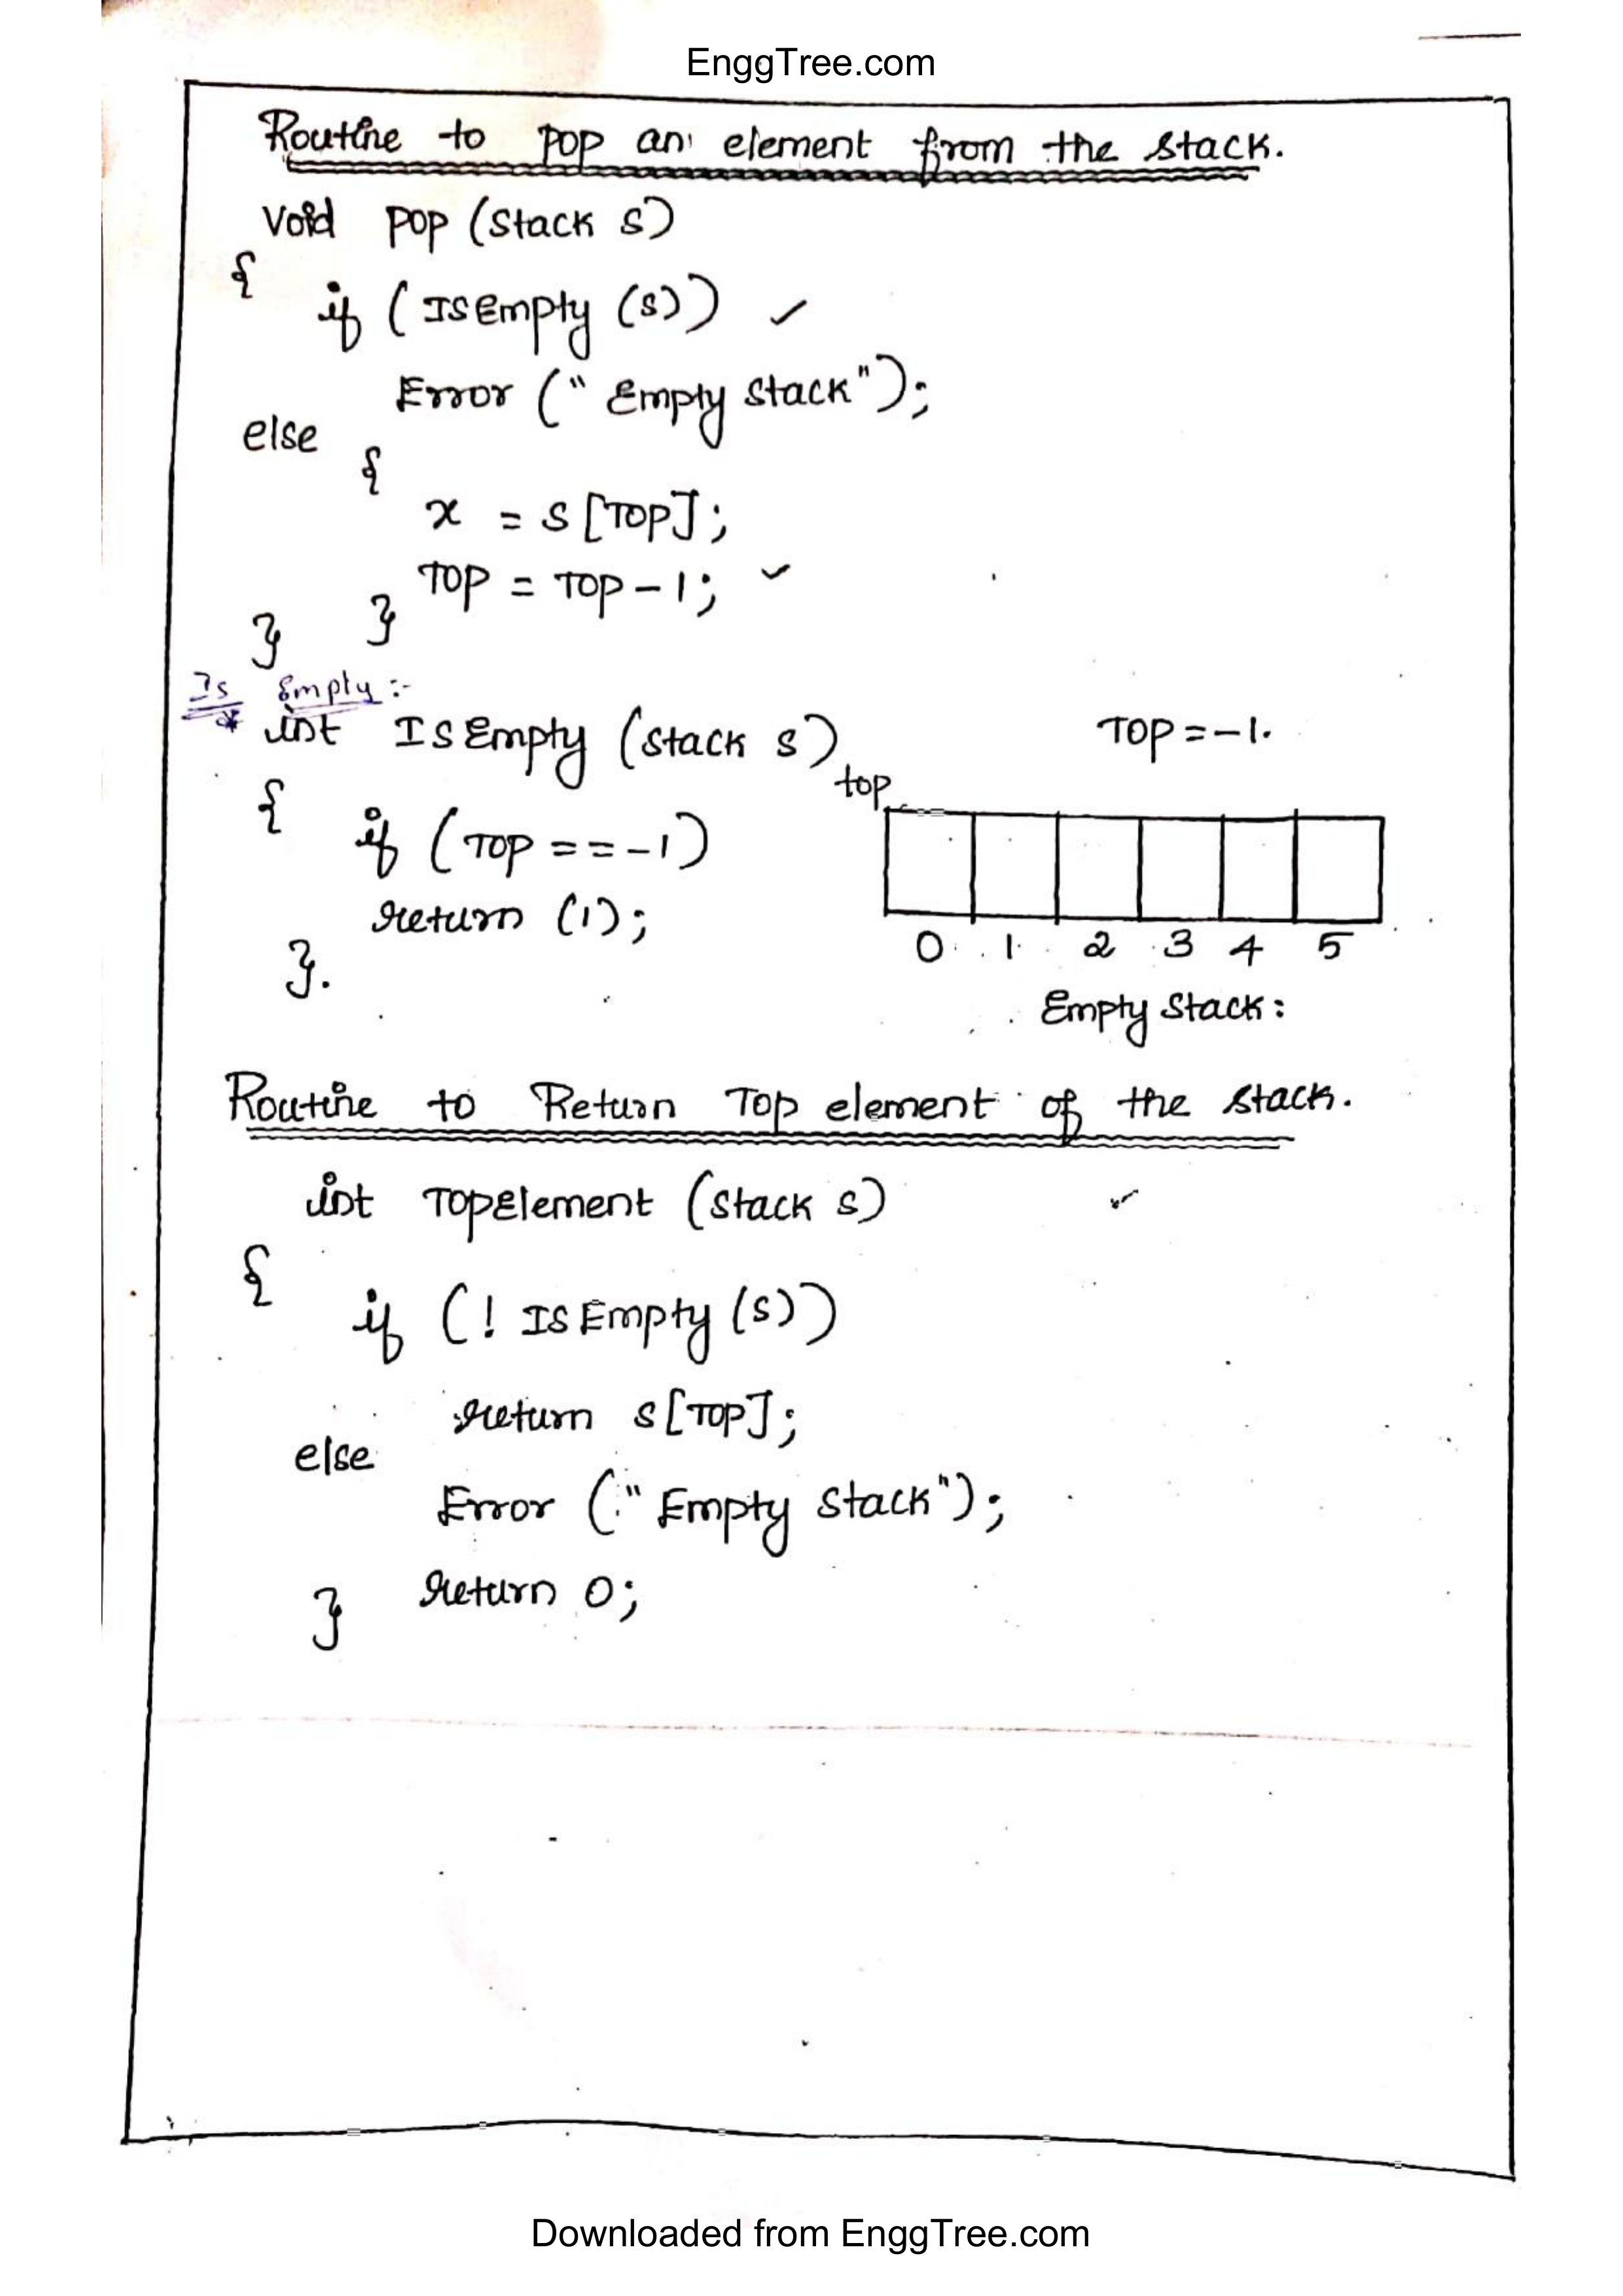 EnggTree.com
Routine to pop an element from the stack.
Void pop (Stack S)
{
if (IsEmpty (S))
Error (" Empty Stack");
else
{
x = S [TOP];
TOP = TOP - 1;
}
}
Is Empty :-
int IsEmpty (Stack S)
TOP = -1.
{
top
if (TOP == -1)
return (1);
}.
0 1 2 3 4 5
Empty Stack:
Routine to Return Top element of the stack.
int TopElement (Stack S)
{
if (! IsEmpty (S))
return S [TOP];
else
Error (" Empty Stack");
return 0;
}
Downloaded from EnggTree.com